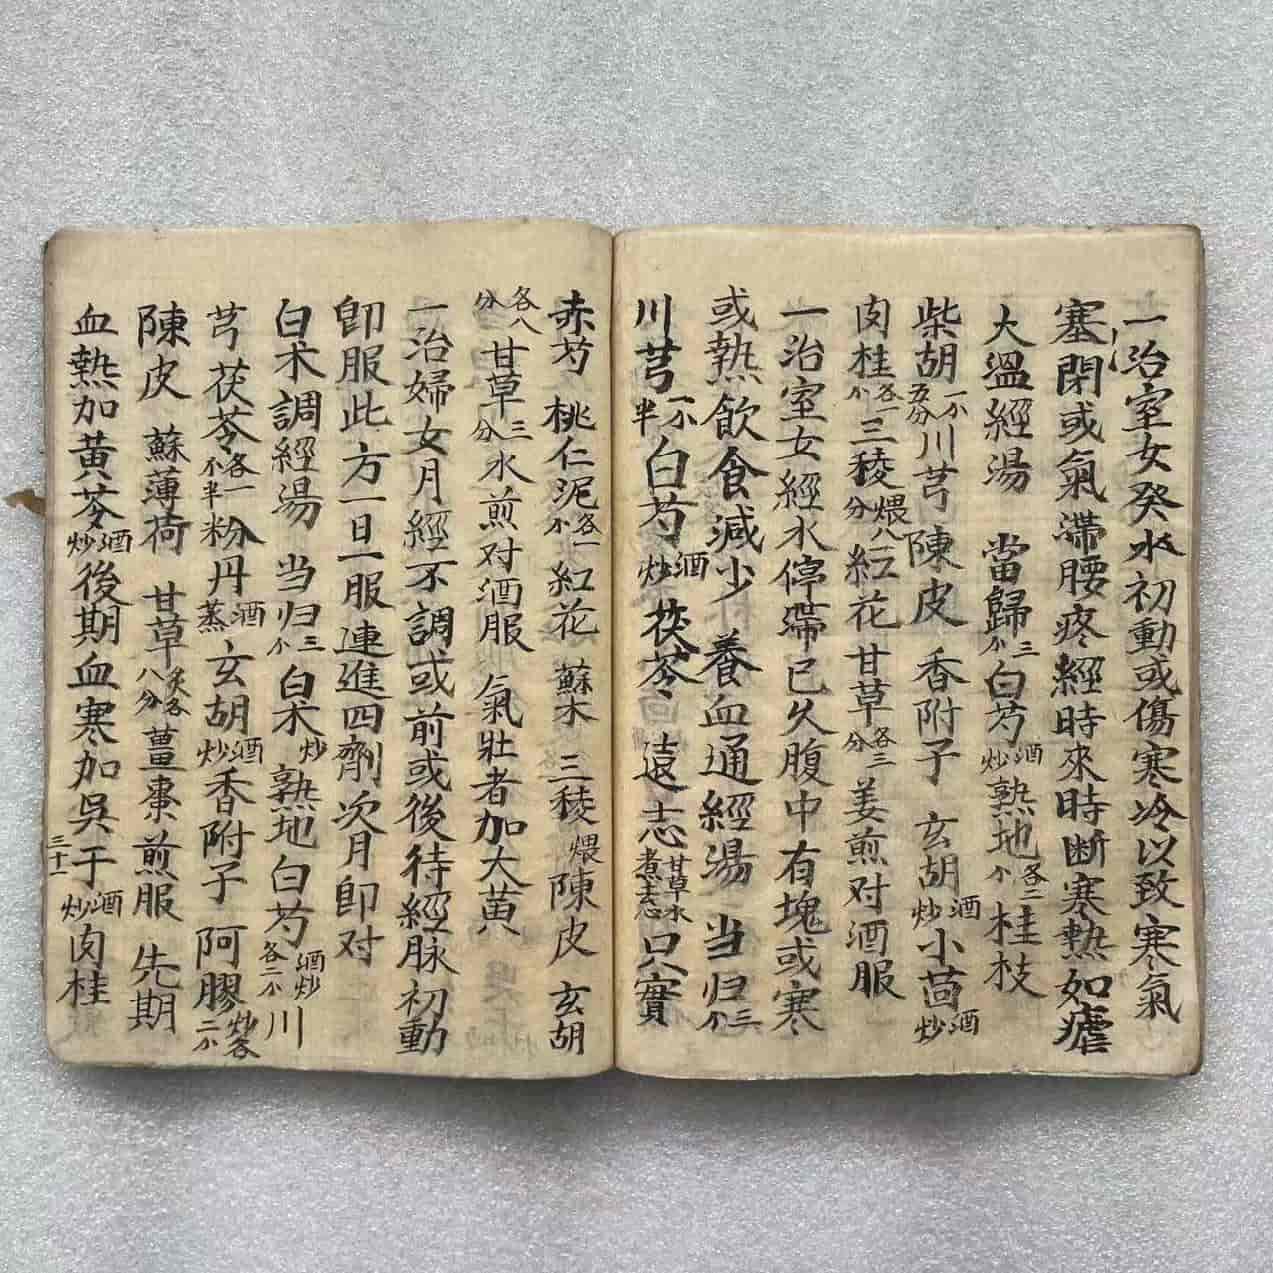 一治室女癸水初動或傷寒冷以致寒氣
塞閉或氣滯腰疼經時來時断寒熱如瘧
大溫經湯　當歸三小白芍酒炒熟地各二小桂枝
柴胡一小五分川芎陳皮　香附子　玄胡酒炒小茴酒炒
肉桂各一小三稜煨八分紅花甘草各三分姜煎对酒服
一治室女經水停滯已久腹中有塊或寒
或熱飲食減少　養血通經湯　当归三小
川芎一小半白芍酒炒茯苓　遠志甘草水煮去志只實
赤芍　桃仁泥各一小紅花　蘇木　三稜煨陳皮　玄胡
各八分甘草三分水煎对酒服　氣壯者加大黄
一治婦女月經不調或前或後待經脉初動
即服此方一日一服連進四劑次月即对
白术調經湯　当归三小白术炒熟地白芍酒炒各二小川
芎茯苓各一小半粉丹酒蒸玄胡酒炒香附子　阿膠炒各二小
陳皮　蘇薄荷　甘草炙各八分薑棗煎服　先期
血熱加黄芩酒炒後期血寒加吳于酒炒肉桂
三十一